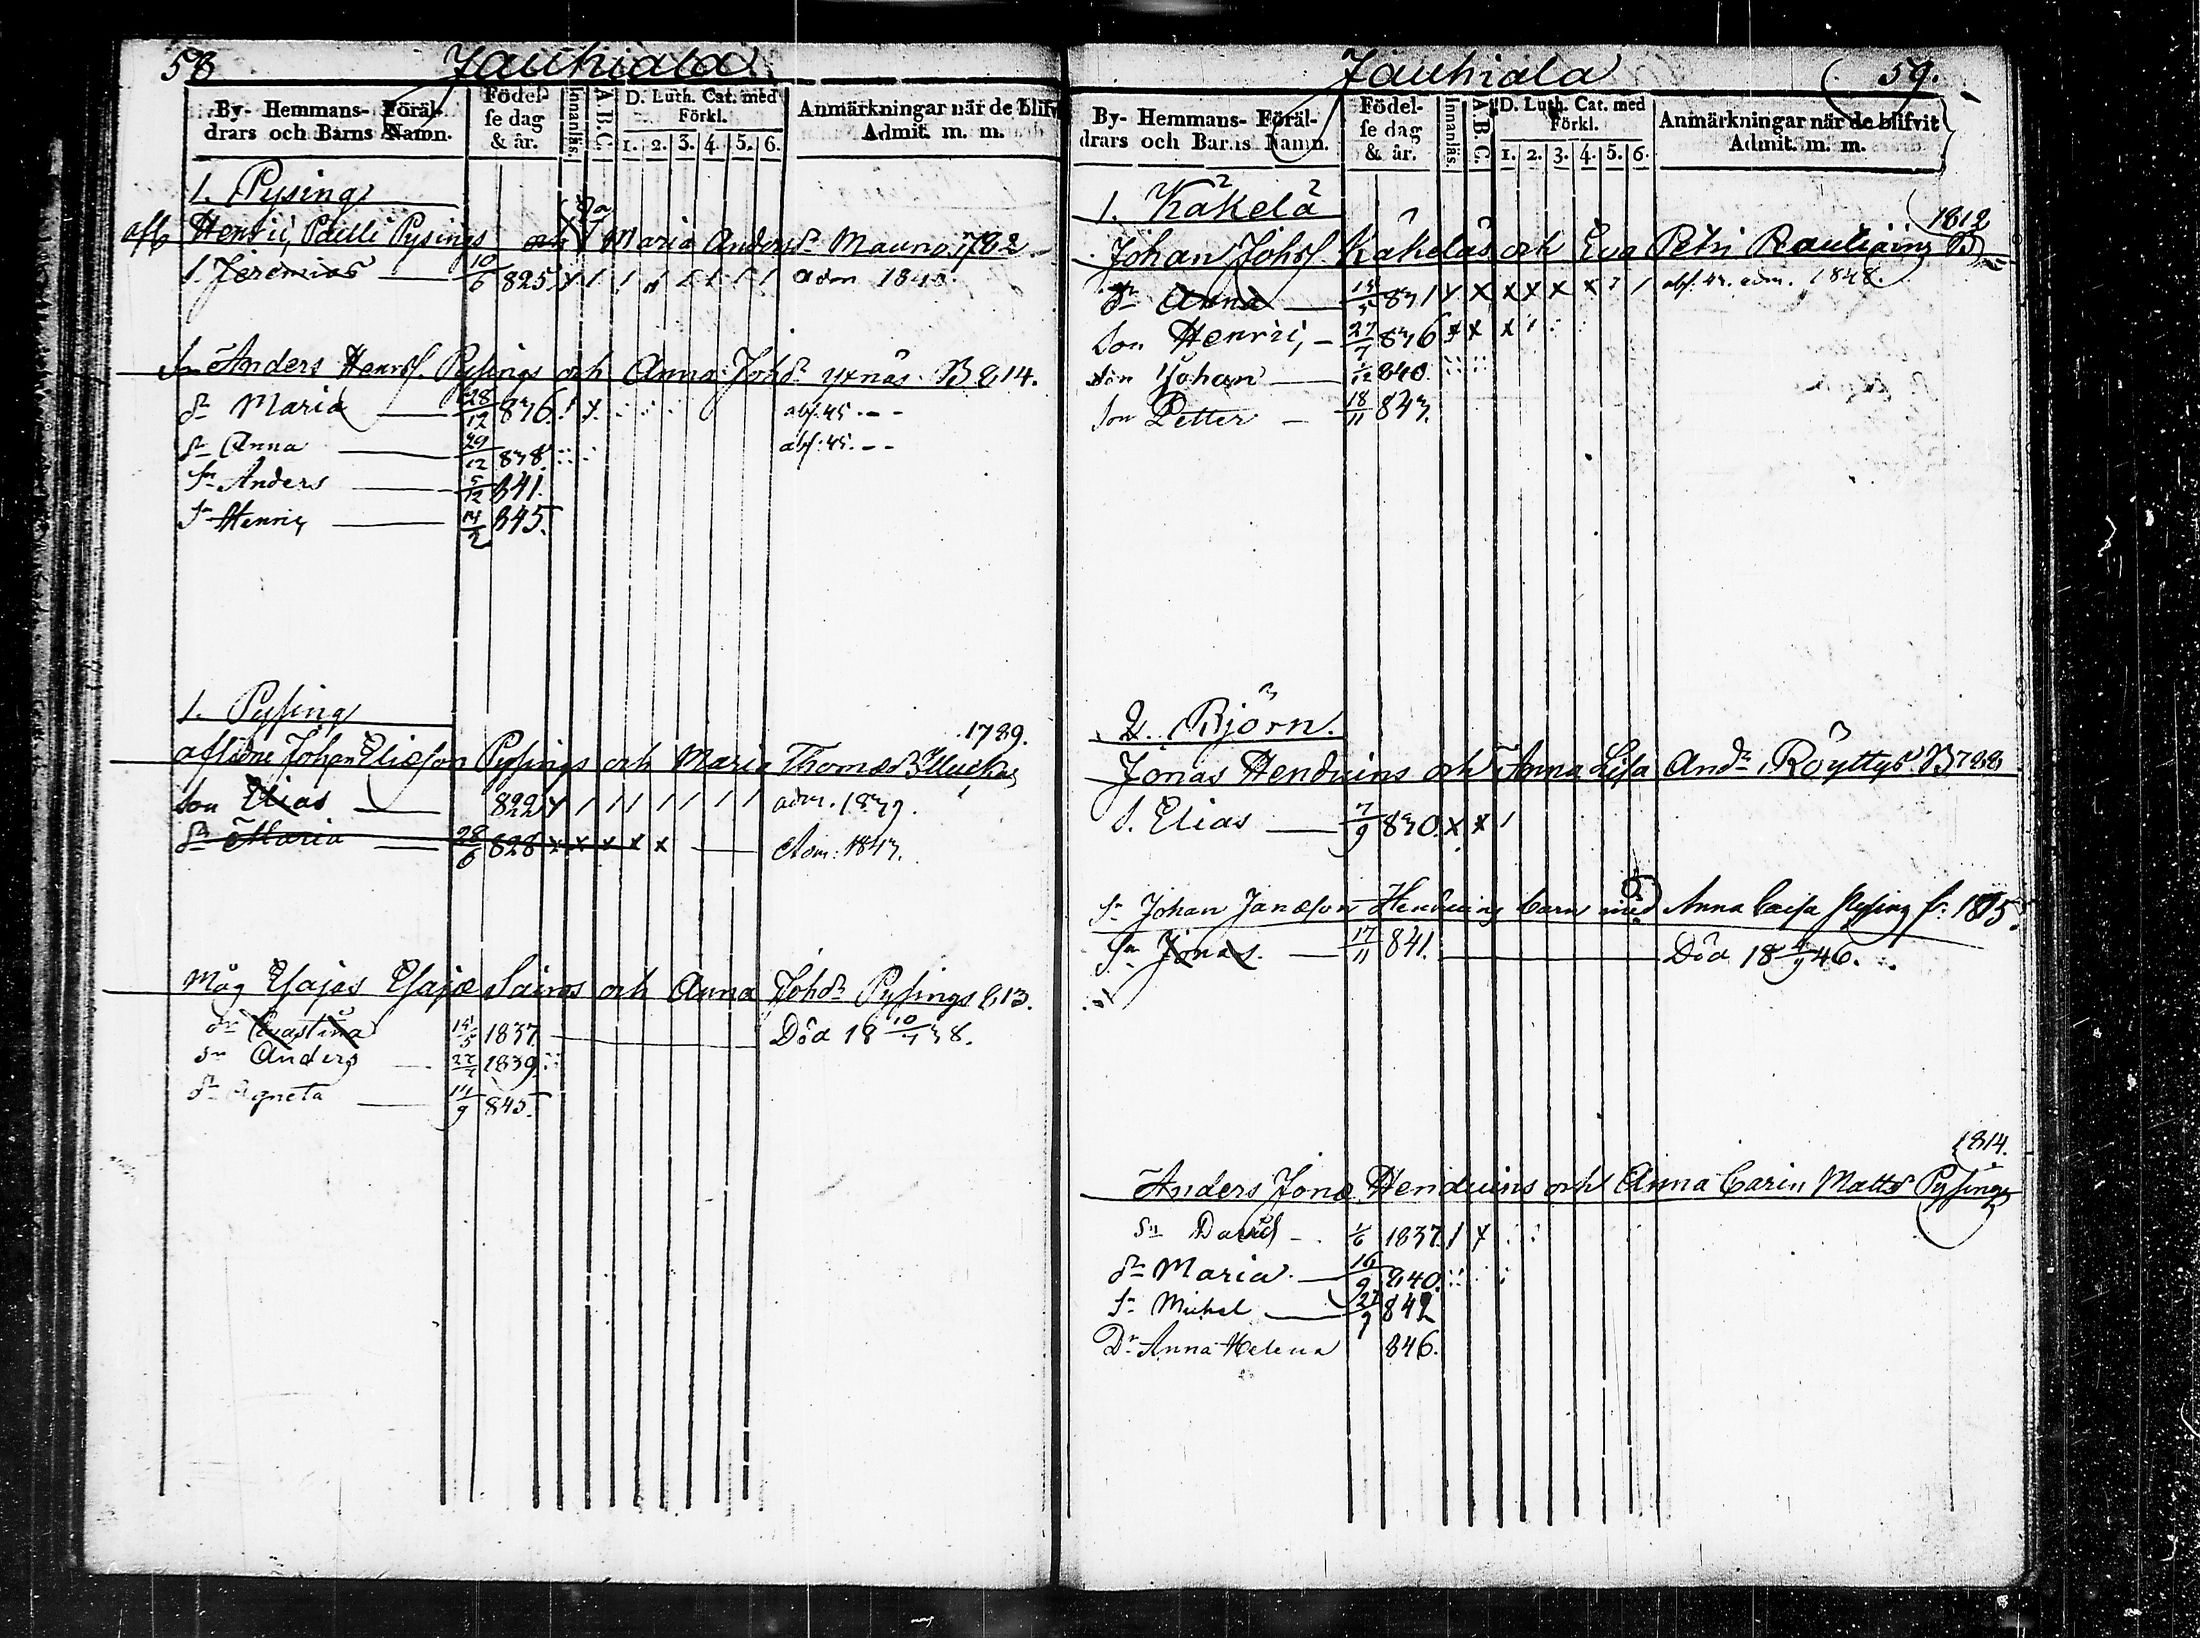 58 Jauhiala
By- Hemmans- Föräl- drars och Barns Namn. Födel- se dag & år. Innanläs. A.B.C. D. Luth. Cat. med Förkl. 1. 2. 3. 4. 5. 6. Anmärkningar när de blifvit Admit. m. m.
1. Pysing
afl Henric Paulli Pysings Maria Andersd:r Mauno. 1782
s. Jeremias 10/6 825. adm 1840.
Anders Henrss. Pysings och Anna Johd:r yxnäs. B 814.
d:r Maria 28/12 836. abs. 45.
d:r Anna 29/12 838. abs. 45.
s:n Anders 5/12 841.
s:n Henric 14/2 845.
1. Pysing
1789.
aflidne Johan Eliæson Pysings och Maria Thomæ
son Elias 822 adm. 1839.
d:r Maria 28/6 828 Adm. 1843.
Måg Esajas Esajæ Sairos och Anna Johd:r Pysings 813.
d:r 1837. Död 18 10/7 38.
s:n Anders 1839.
d:r Agneta 14/9 845.
Jauhiala 59.
By- Hemmans- Föräl- drars och Barns Namn. Födel- se dag & år. Innanläs. A.B.C. D. Luth. Cat. med Förkl. 1. 2. 3. 4. 5. 6. Anmärkningar när de blifvit Admit. m. m.
1. Käkelä
1812
Johan Johss. Käkeläs och Eva Petri B
d:r Anna 831 abs. 45. adm. 1848.
son Henric 27/7 836
son Johan 1/12 840.
son Petter 18/11 843.
2. Björn.
Jonas Henduins och Anna Lisa And:r Röyttys. B 788
s. Elias 7/9 830.
s:n Johan Janæson Henduins barn med Anna Caisa Pysing f. 1815.
s:n Jonas. 17/11 841. Död 18 4/9 46.
1814.
Anders Jonæ Henduins och Anna Carin Matts Pysings
s:n David 1/6 1837.
d:r Maria 16/9 840.
s:n Michel 27/9 842
D:r Anna Helena 846.